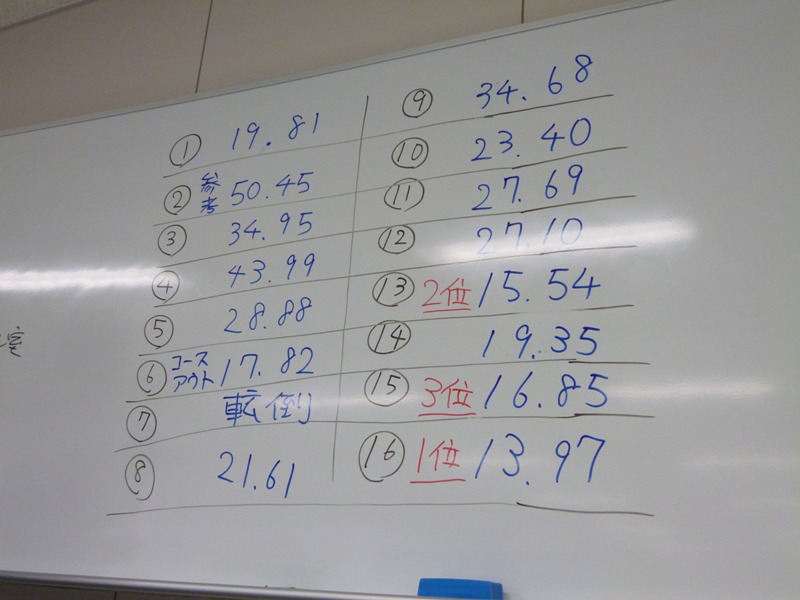 ① 19.81
② 参考 50.45
③ 34.95
④ 43.99
⑤ 28.88
⑥ コースアウト 17.82
⑦ 転倒
⑧ 21.61
⑨ 34.68
⑩ 23.40
⑪ 27.69
⑫ 27.10
⑬ 2位 15.54
⑭ 19.35
⑮ 3位 16.85
⑯ 1位 13.97